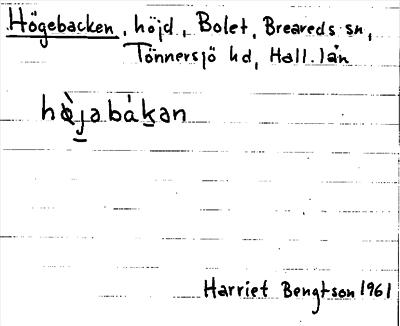 Högebacken, höjd, Bolet, Breareds sn,
Tönnersjö hd, Hall. län
hø̀jabákan
Harriet Bengtson 1961